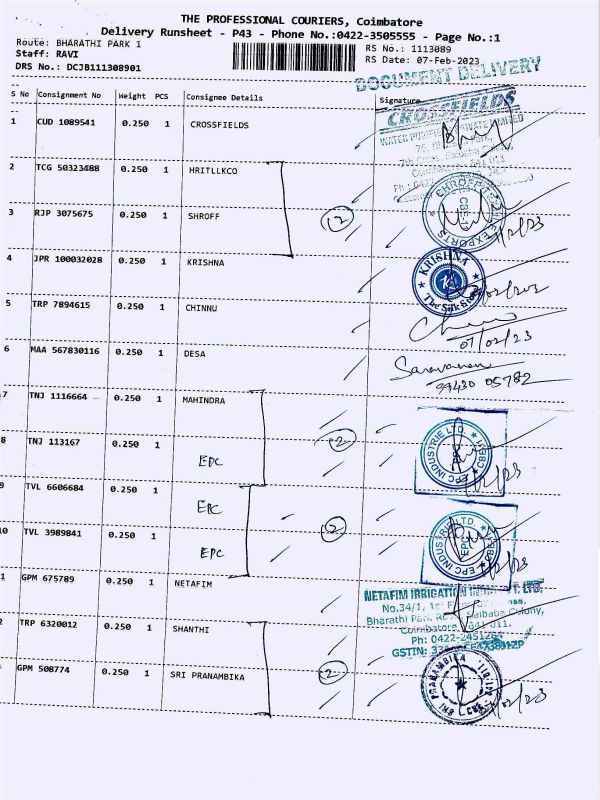 THE PROFESSIONAL COURIERS, Coimbatore
Delivery Runsheet - P43 - Phone No.:0422-3505555 - Page No.:1
Route: BHARATHI PARK 1 RS No.: 1113089
Staff: RAVI RS Date: 07-Feb-2023
DRS No.: DCJB111308901
DOCUMENT DELIVERY
S No Consignment No Weight PCS Consignee Details Signature
1 CUD 1089541 0.250 1 CROSSFIELDS
CROSSFIELDS
2 TCG 50323488 0.250 1 HRITLLKCO
3 RJP 3075675 0.250 1 SHROFF
2
EXPORTS
4 JPR 100032028 0.250 1 KRISHNA
KRISHNA
The Silk
5 TRP 7894615 0.250 1 CHINNU
07/02/23
6 MAA 567830116 0.250 1 DESA
Saravanan
99430 05782
7 TNJ 1116664 0.250 1 MAHINDRA
2
8 TNJ 113167 0.250 1 EPC
EPC INDUSTRIE LTD
9 TVL 6606684 0.250 1 EPC
2
10 TVL 3989841 0.250 1 EPC
EPC INDUSTRIE LTD
EPC
1 GPM 675789 0.250 1 NETAFIM
NETAFIM IRRIGATION
No.34/1,
Bharathi Park Saibaba Colony,
Coimbatore 641 011.
Ph: 0422-2451
GSTIN: 33
2 TRP 6320012 0.250 1 SHANTHI
2
GPM 508774 0.250 1 SRI PRANAMBIKA
SRI PRANAMBIKA
CBE